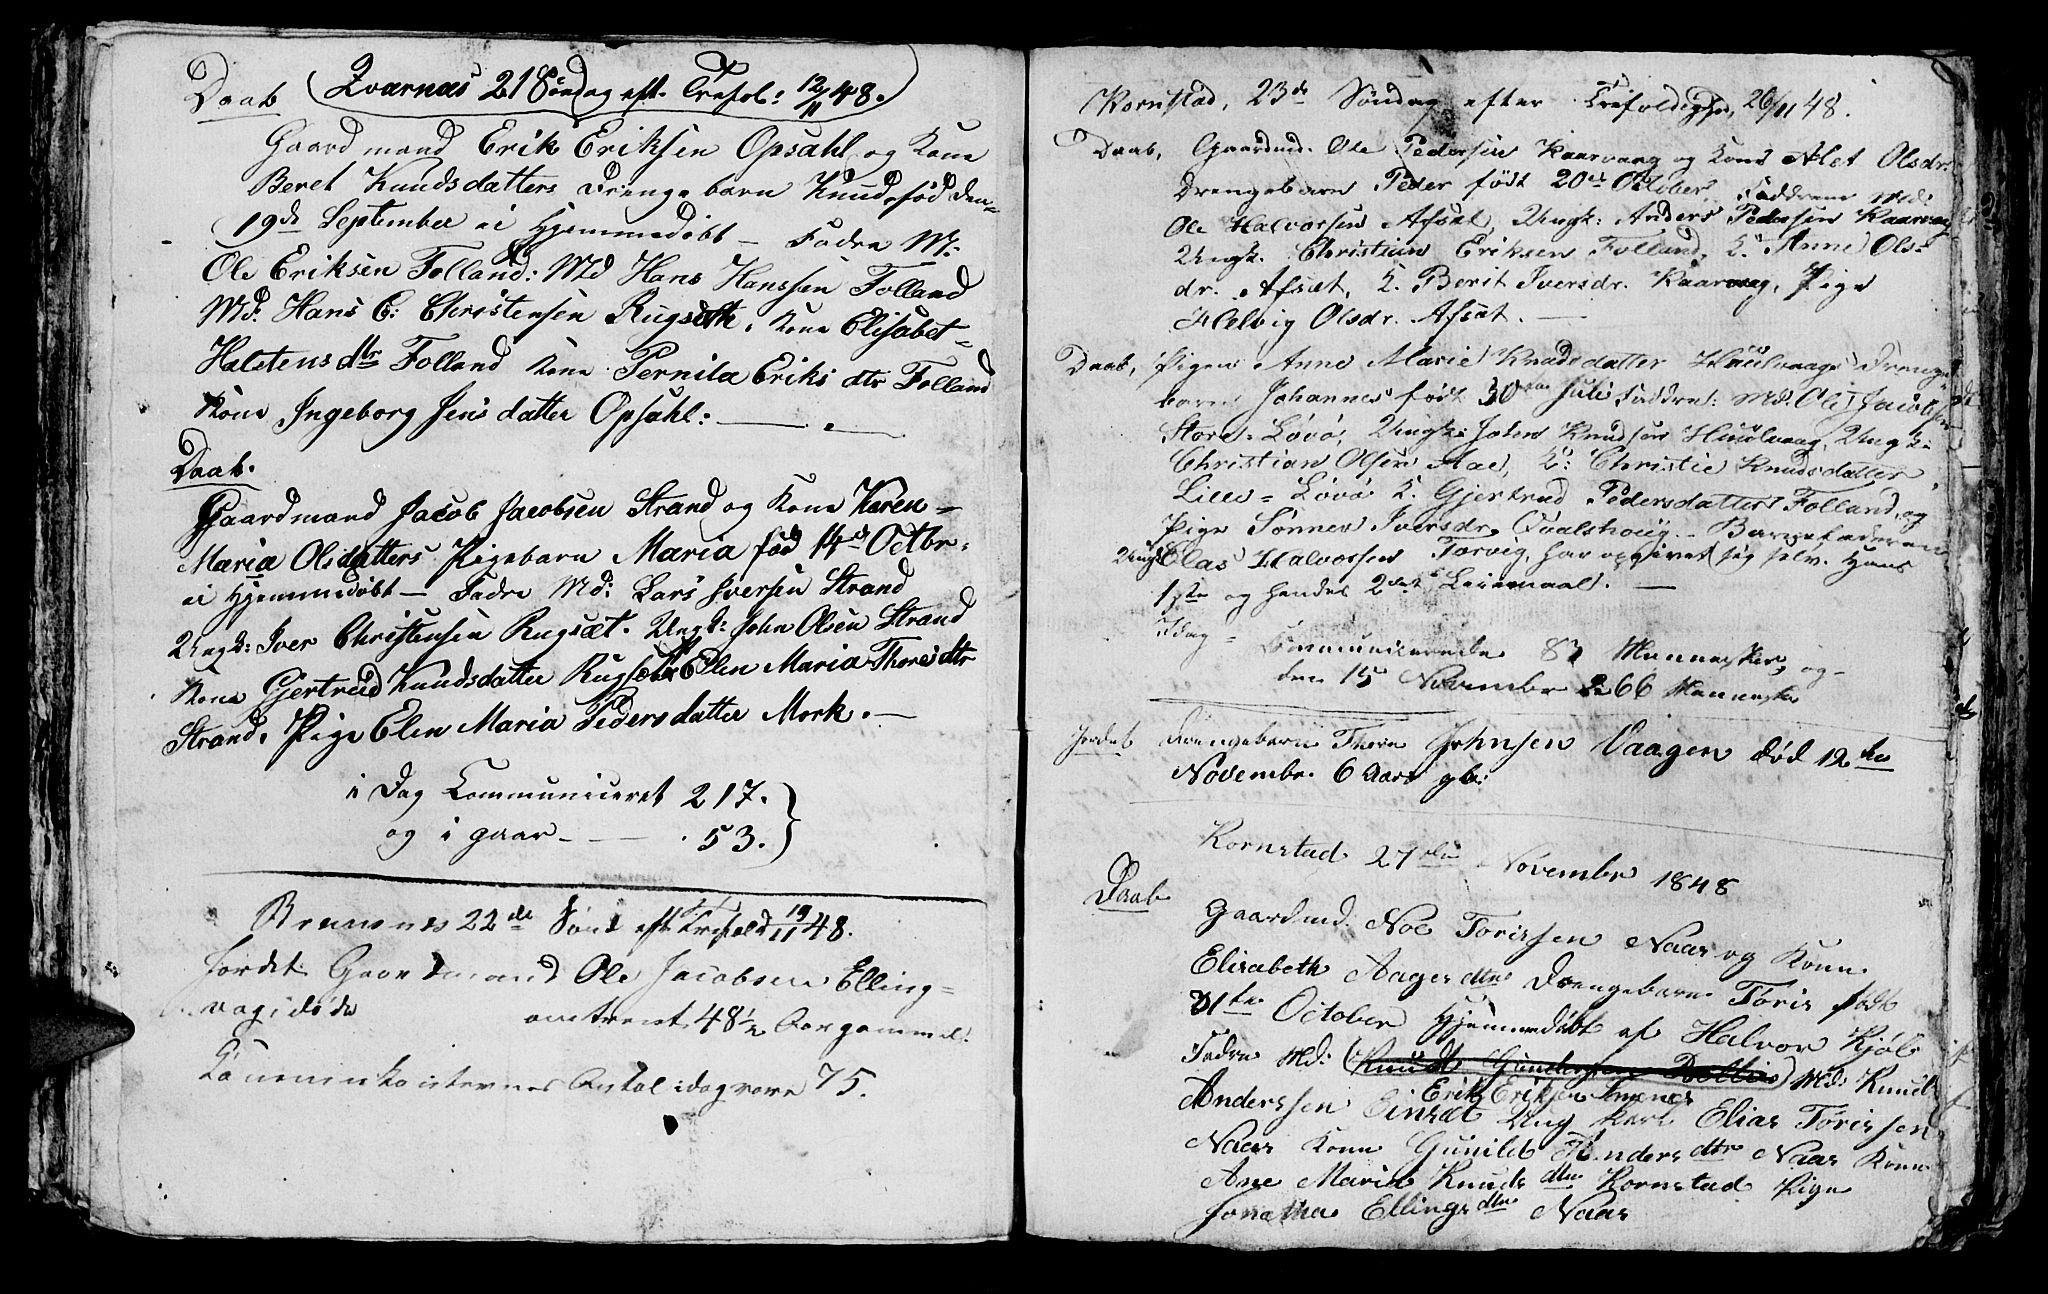 Qværnæs 21 Søndag eft. Trefol: 12/11 48.
Daab
Gaardmand Erik Eriksen Opsahl og Kone
Beret Knudsdatters Drengebarn Knud, fød den
19de September ei Hjemmedøbt — Fadre M:
Ole Eriksen Folland: Md Hans Hanssen Folland
Md: Hans C: Christensen Rugseth, Kone Elisabet
Halstensdtr Folland Kone Pernila Eriksdtr Folland
Kone Ingeborg Jensdatter Opsahl: —
Daab.
Gaardmand Jacob Jacobsen Strand og Kone Karen
Maria Olsdatters Pigebarn Maria fød 14de Octbr.
ei Hjemmedøbt — Fadre Md: Lars Iversen Strand
Ungk: Iver Christensen Rugsæt. Ungk: John Olsen Strand
Kone Gjertrud Knudsdatter Rugsæt Elen Maria Thoresdtr
Strand, Pige Elen Maria Pedersdatter Mork. —
i Dag Communiceret 217.
og i gaar — 53.
Bremsnes 22de Sønd eft Trefold 19/11 48.
Jordet Gaardmand Ole Jacobsen Elling=
vag, døde omtrent 48½ Aar gammel.
Communikanternes Antal idag vare 75.
Kornstad, 23de Søndag efter Trefoldighd, 26/11 48.
Daab, Gaardmd. Ole Pedersen Kaarvaag og Kone Alet Olsdr.
Drengebarn Peder født 20de October, Faddrene Md:
Ole Halvorsen Afsæt, Ungk: Anders Pedersen Kaarvaag
Ungk. Christian Eriksen Folland, K. Anne Ols-
dr. Afsæt, K. Berit Iversdr. Kaarvaag, Pige
Helvig Olsdr. Afsæt. —
Daab, Pigen Anne Marie Knudsdatter Hæulvaags Drenge
barn Johannes født 30te Juli Faddre: Md. Ole Jacobsen
Store-Løvø, Ungk: John Knudsen Huulvaag, Ungk:
Christian Olsen Aae, K: Christie Knudsdatter
Lille-Løvø K. Gjertrud Pedersdatter Folland, og
Pige Sønnev Iversdr. Qvalshoug. Barnefaderen
Ungk Elias Halvorssen Torvig, har opgivet sig selv. Hans
1ste og hendes 2det Leiermaal. —
Idag Communicerede 83 Mennesker, og
den 15 November 66 Menneske
Jordet Drengebarn Thore Johnsen Vaagen død 12te
Novembr. 6 Aar gl:
Kornstad 27de November 1848
Daab
Gaardmd. Noe Torissen Naas og Kone
Elisabeth Aagesdtr Drengebarn Tøris født
31te October Hjemmedøbt af Halvor Kjøl
Fadre Md: (Knudt Gundersen) Md: Knud
Erik Eriksen
Anderssen Einsæt Ung Karl Elias Tørissen
Naas Kone Gunild Andersdtr Naas Kone
Ane Maria Knudsdtr Kornstad Pige
Jonetha Ellingsdtr Naas